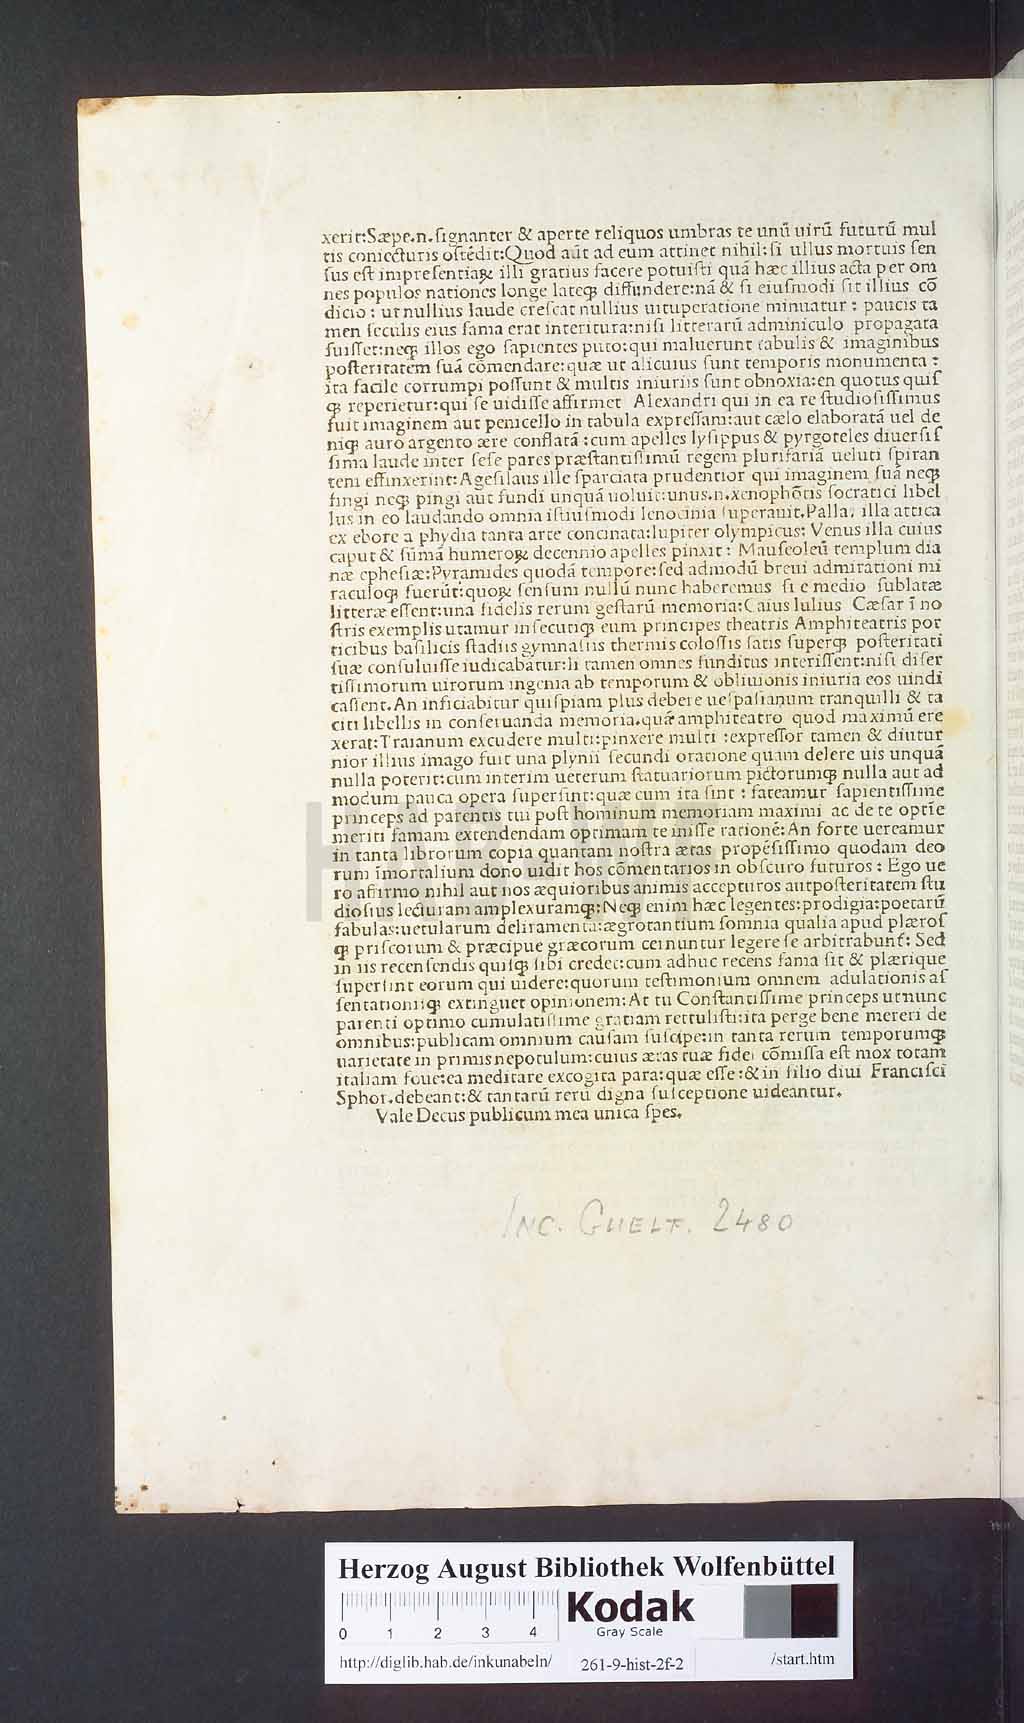 xerit:Sæpe.n.ſignanter & aperte reliquos umbras te unū uirū futurū mul
tis coniecturis oſtēdit:Quod aūt ad eum attinet nihil:ſi ullus mortuis ſen
ſus eſt impreſentiaꝝ illi gratius facere potuiſti quā hæc illius acta per om
nes populos nationes longe lateqꝫ diffundere:nā & ſi eiuſmodi ſit illius cō
dicio : ut nullius laude creſcat nullius uituperatione minuatur : paucis ta
men ſeculis eius fama erat interitura:niſi litterarū adminiculo propagata
fuiſſet:neqꝫ illos ego ſapientes puto:qui maluerunt tabulis & imaginibus
poſteritatem ſuā cōmendare:quæ ut alicuius ſunt temporis monumenta :
ita facile corrumpi poſſunt & multis iniuriis ſunt obnoxia:en quotus quiſ
qꝫ reperietur:qui ſe uidiſſe affirmet Alexandri qui in ea re ſtudioſiſſimus
fuit imaginem aut penicello in tabula expreſſam:aut cælo elaboratā uel de
niqꝫ auro argento ære conflatā :cum apelles lyſippus & pyrgoteles diuerſiſ
ſima laude inter ſeſe pares præſtantiſſimū regem plurifariā ueluti ſpiran
tem effinxerint:Ageſilaus ille ſpartiata prudentior qui imaginem ſuā neqꝫ
fingi neqꝫ pingi aut fundi unquā uoluit:unus.n.xenophōtis ſocratici libel
lus in eo laudando omnia iſtiuſmodi lenocinia ſuperauit.Palla. illa attica
ex ebore a phydia tanta arte concinata:Iupiter olympicus: Venus illa cuius
caput & ſūmā humeroꝝ decennio apelles pinxit : Mauſeoleū templum dia
næ epheſiæ:Pyramides quodā tempore:ſed admodū breui admirationi mi
raculoqꝫ fuerūt:quoꝝ ſenſum nullū nunc haberemus ſi e medio ſublatæ
litteræ eſſent:una fidelis rerum geſtarū memoria:Caius Iulius Cæſar ī no
ſtris exemplis utamur inſecutiqꝫ eum principes theatris Amphiteatris por
ticibus baſilicis ſtadiis gymnaſiis thermis coloſſis ſatis ſuperqꝫ poſteritati
ſuæ conſuluiſſe iudicabātur:li tamen omnes funditus interiſſent:niſi diſer
tiſſimorum uirorum ingenia ab temporum & obliuionis iniuria eos uindi
caſſent.An inficiabitur quiſpiam plus debere ueſpaſianum tranquilli & ta
citi libellis in conſeruanda memoria.quā amphiteatro quod maximū ere
xerat:Traianum excudere multi:pinxere multi :expreſſor tamen & diutur
nior illius imago fuit una plynii ſecundi oratione quam delere uis unquā
nulla poterit:cum interim ueterum ſtatuariorum pictorumqꝫ nulla aut ad
modum pauca opera ſuperſint:quæ cum ita ſint : fateamur ſapientiſſime
princeps ad parentis tui poſt hominum memoriam maximi ac de te optīe
meriti famam extendendam optimam te iniſſe rationē:An forte uereamur
in tanta librorum copia quantam noſtra ætas propēſiſſimo quodam deo
rum īmortalium dono uidit hos cōmentarios in obſcuro futuros : Ego ue
ro affirmo nihil aut nos æquioribus animis accepturos autpoſteritatem ſtu
dioſius lecturam amplexuramqꝫ:Neqꝫ enim hæc legentes:prodigia:poetarū
fabulas:uetularum deliramenta:ægrotantium ſomnia qualia apud plæroſ
qꝫ priſcorum & præcipue græcorum cernuntur legere ſe arbitrabunt: Sed
in iis recenſendis quiſqꝫ ſibi credet:cum adhuc recens fama ſit & plærique
ſuperſint eorum qui uidere:quorum teſtimonium omnem adulationis aſ
ſentationiſqꝫ extinguet opinionem:At tu Conſtantiſſime princeps ut nunc
parenti optimo cumulatiſſime gratiam rettuliſti:ita perge bene mereri de
omnibus:publicam omnium cauſam ſuſcipe:in tanta rerum temporumqꝫ
uarietate in primis nepotulum:cuius ætas tuæ fidei cōmiſſa eſt mox totam
italiam foue:ea meditare excogita para:quæ eſſe:& in filio diui Franciſci
Sphor.debeant:& tantarū rerū digna ſuſceptione uideantur.
Vale Decus publicum mea unica ſpes.
Inc. Guelf. 2480
HAB-WF
Herzog August Bibliothek Wolfenbüttel
0 1 2 3 4
Kodak
Gray Scale
http://diglib.hab.de/inkunabeln/ 261-9-hist-2f-2 /start.htm